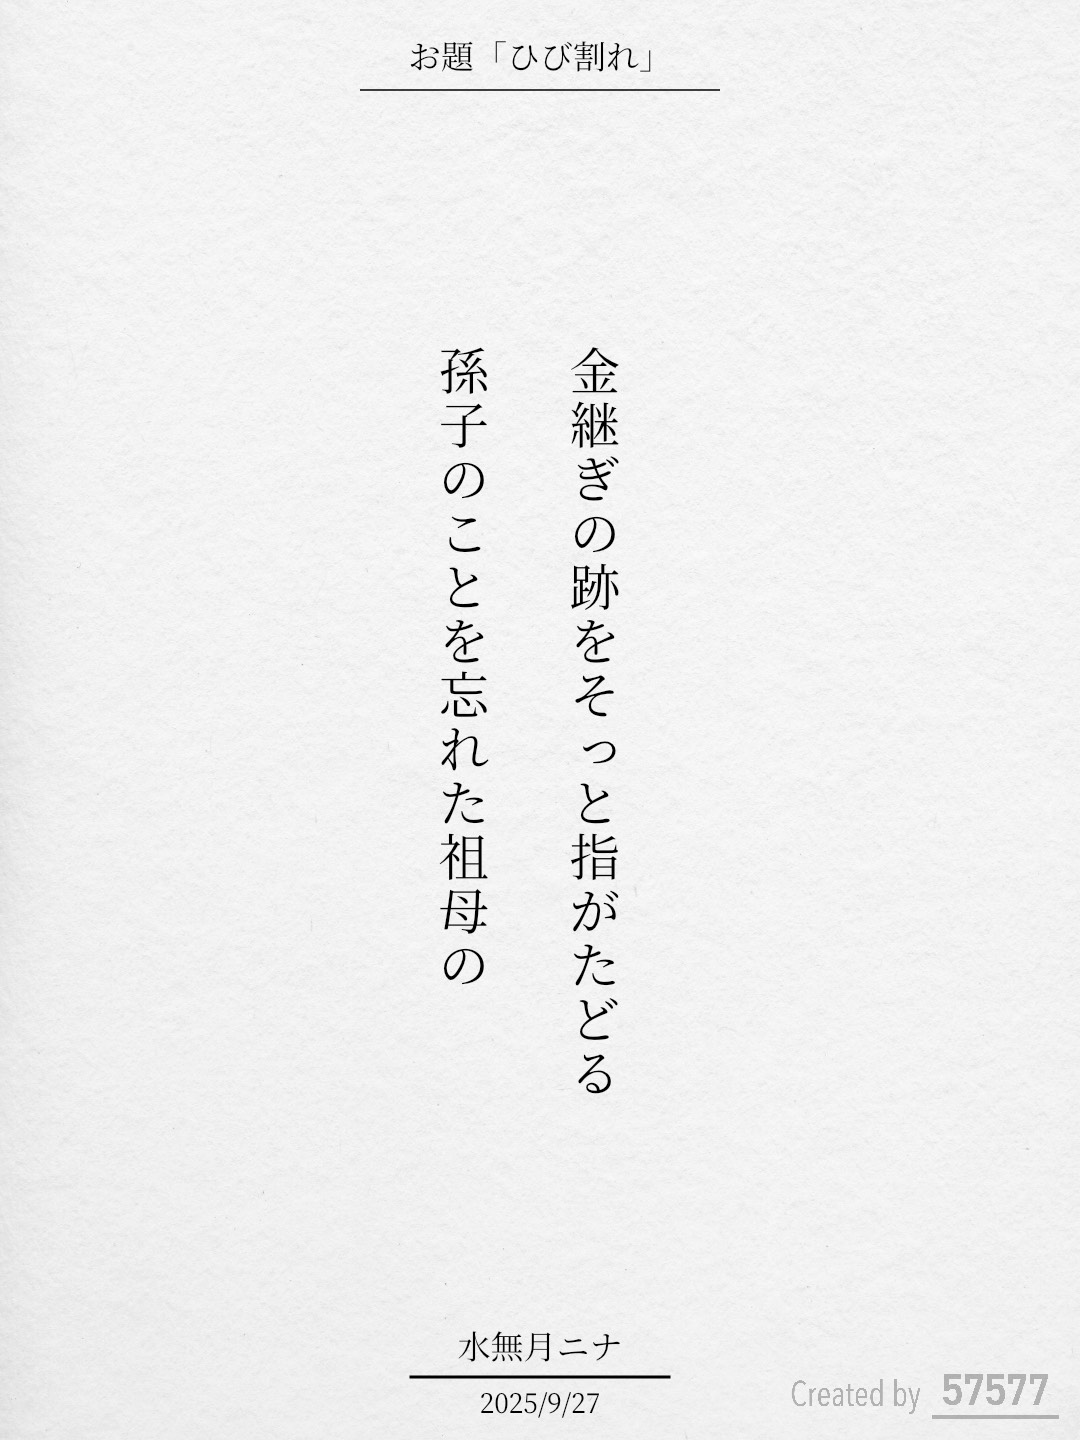 お題「ひび割れ」
金継ぎの跡をそっと指がたどる
孫子のことを忘れた祖母の
水無月ニナ
2025/9/27
Created by 57577